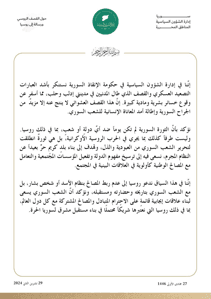 حول القصف الروسي
رسالة إلى روسيا
إدارة الشؤون السياسية
المناطق المحررة
إننا في إدارة الشؤون السياسية في حكومة الإنقاذ السورية نستنكر بأشد العبارات
التصعيد العسكري والقصف الذي طال المدنيين في مدينتي إدلب وحلب، مما أسفر عن
وقوع خسائر بشرية ومادية كبيرة. إن هذا القصف العشوائي لا ينتج عنه إلا مزيدًا من
الجراح السورية وإطالة أمد المعاناة الإنسانية للشعب السوري.
نؤكد بأن الثورة السورية لم تكن يوماً ضد أي دولة أو شعب، بما في ذلك روسيا.
وليست طرفًا كذلك بما يجري في الحرب الروسية الأوكرانية، بل هي ثورة انطلقت
لتحرير الشعب السوري من العبودية والذل، وتهدف إلى بناء بلد كريم حرٍّ بعيداً عن
النظام المجرم، نسعى فيه إلى ترسيخ مفهوم الدولة وتفعيل المؤسسات المجتمعية والتعامل
مع المصالح الوطنية كأولوية في العلاقات البينية في المجتمع.
إننا في هذا السياق ندعو روسيا إلى عدم ربط المصالح بنظام الأسد أو شخص بشار، بل
مع الشعب السوري بتاريخه وحضارته ومستقبله. ونؤكد أن الشعب السوري يسعى
لبناء علاقات إيجابية قائمة على الاحترام المتبادل والمصالح المشتركة مع كل دول العالم،
بما في ذلك روسيا التي نعتبرها شريكًا محتملًا في بناء مستقبل مشرق لسوريا الحرة.
27 جمادى الأولى 1446
29 تشرين الثاني 2024